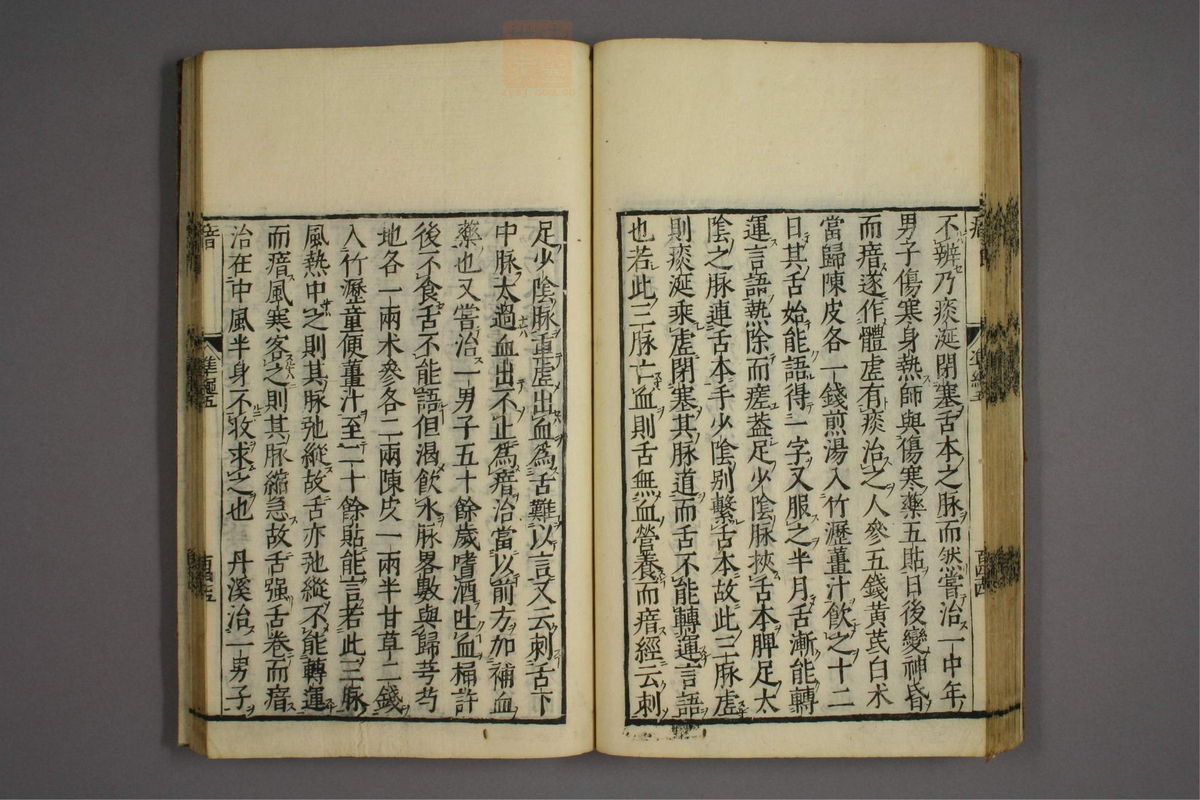 不辨乃痰涎閉塞舌本之脉而然嘗治一中年
男子傷寒身熱師與傷寒藥五貼日後變神昏
而瘖遂作體虛有痰治之人參五錢黃芪白术
當歸陳皮各一錢煎湯入竹瀝薑汁飲之十二
日其舌始能語得一字又服之半月舌漸能轉
運言語熱除而痊蓋足少陰脉挾舌本脾足太
陰之脉連舌本手少陰别繫舌本故此三脉虛
則痰涎乘虛閉塞其脉道而舌不能轉運言語
也若此三脉亡血則舌無血營養而瘖經云刺
足少陰脉重虛出血爲舌難以言又云刺舌下
中脉太過血出不止爲瘖治當以前方加補血
藥也又嘗治一男子五十餘歲嗜酒吐血桶許
後不食舌不能語但渴飲水脉畧數與歸芎芍
地各一兩术參各二兩陳皮一兩半甘草二錢
入竹瀝童便薑汁至二十餘貼能言若此三脉
風熱中之則其脉弛縱故舌亦弛縱不能轉運
而瘖風寒客之則其脉縮急故舌强舌卷而瘖
治在中風半身不收求之也 丹溪治一男子
瘖
準繩五